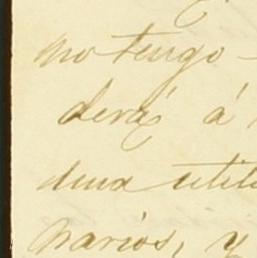 no tengo
derá á
dena utili
narios, y